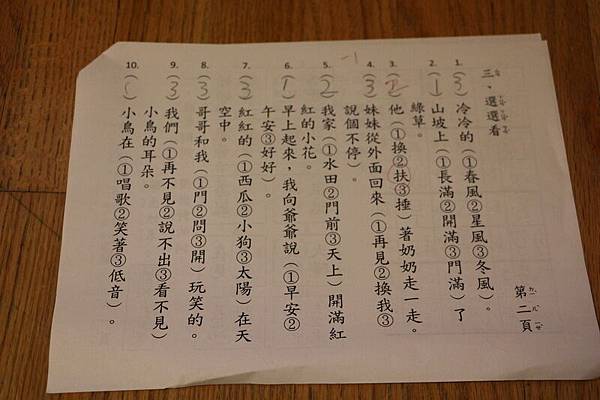 三、選選看
第二頁
1.(3)冷冷的（①春風②星風③冬風）。
2.(1)山坡上（①長滿②開滿③門滿）了
綠草。
3.(2)他（①換②扶③捶）著奶奶走一走。
4.(3)妹妹從外面回來（①再見②換我③
說個不停）。
-1
5.(2)我家（①水田②門前③天上）開滿紅
紅的小花。
6.(1)早上起來，我向爺爺說（①早安②
午安③好好）。
7.(3)紅紅的（①西瓜②小狗③太陽）在天
空中。
8.(3)哥哥和我（①門②問③開）玩笑的。
9.(3)我們（①再不見②說不出③看不見）
小鳥的耳朵。
10.(1)小鳥在（①唱歌②笑著③低音）。